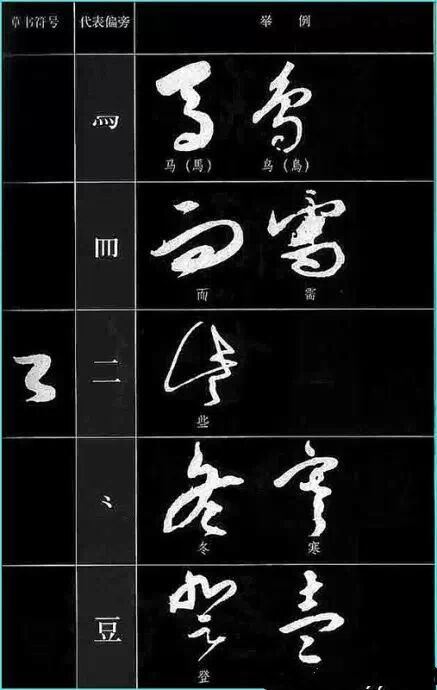 草书符号 代表偏旁 举 例
马（馬） 鸟（鳥）
而 需
二
些
⺀
冬 寒
豆
登